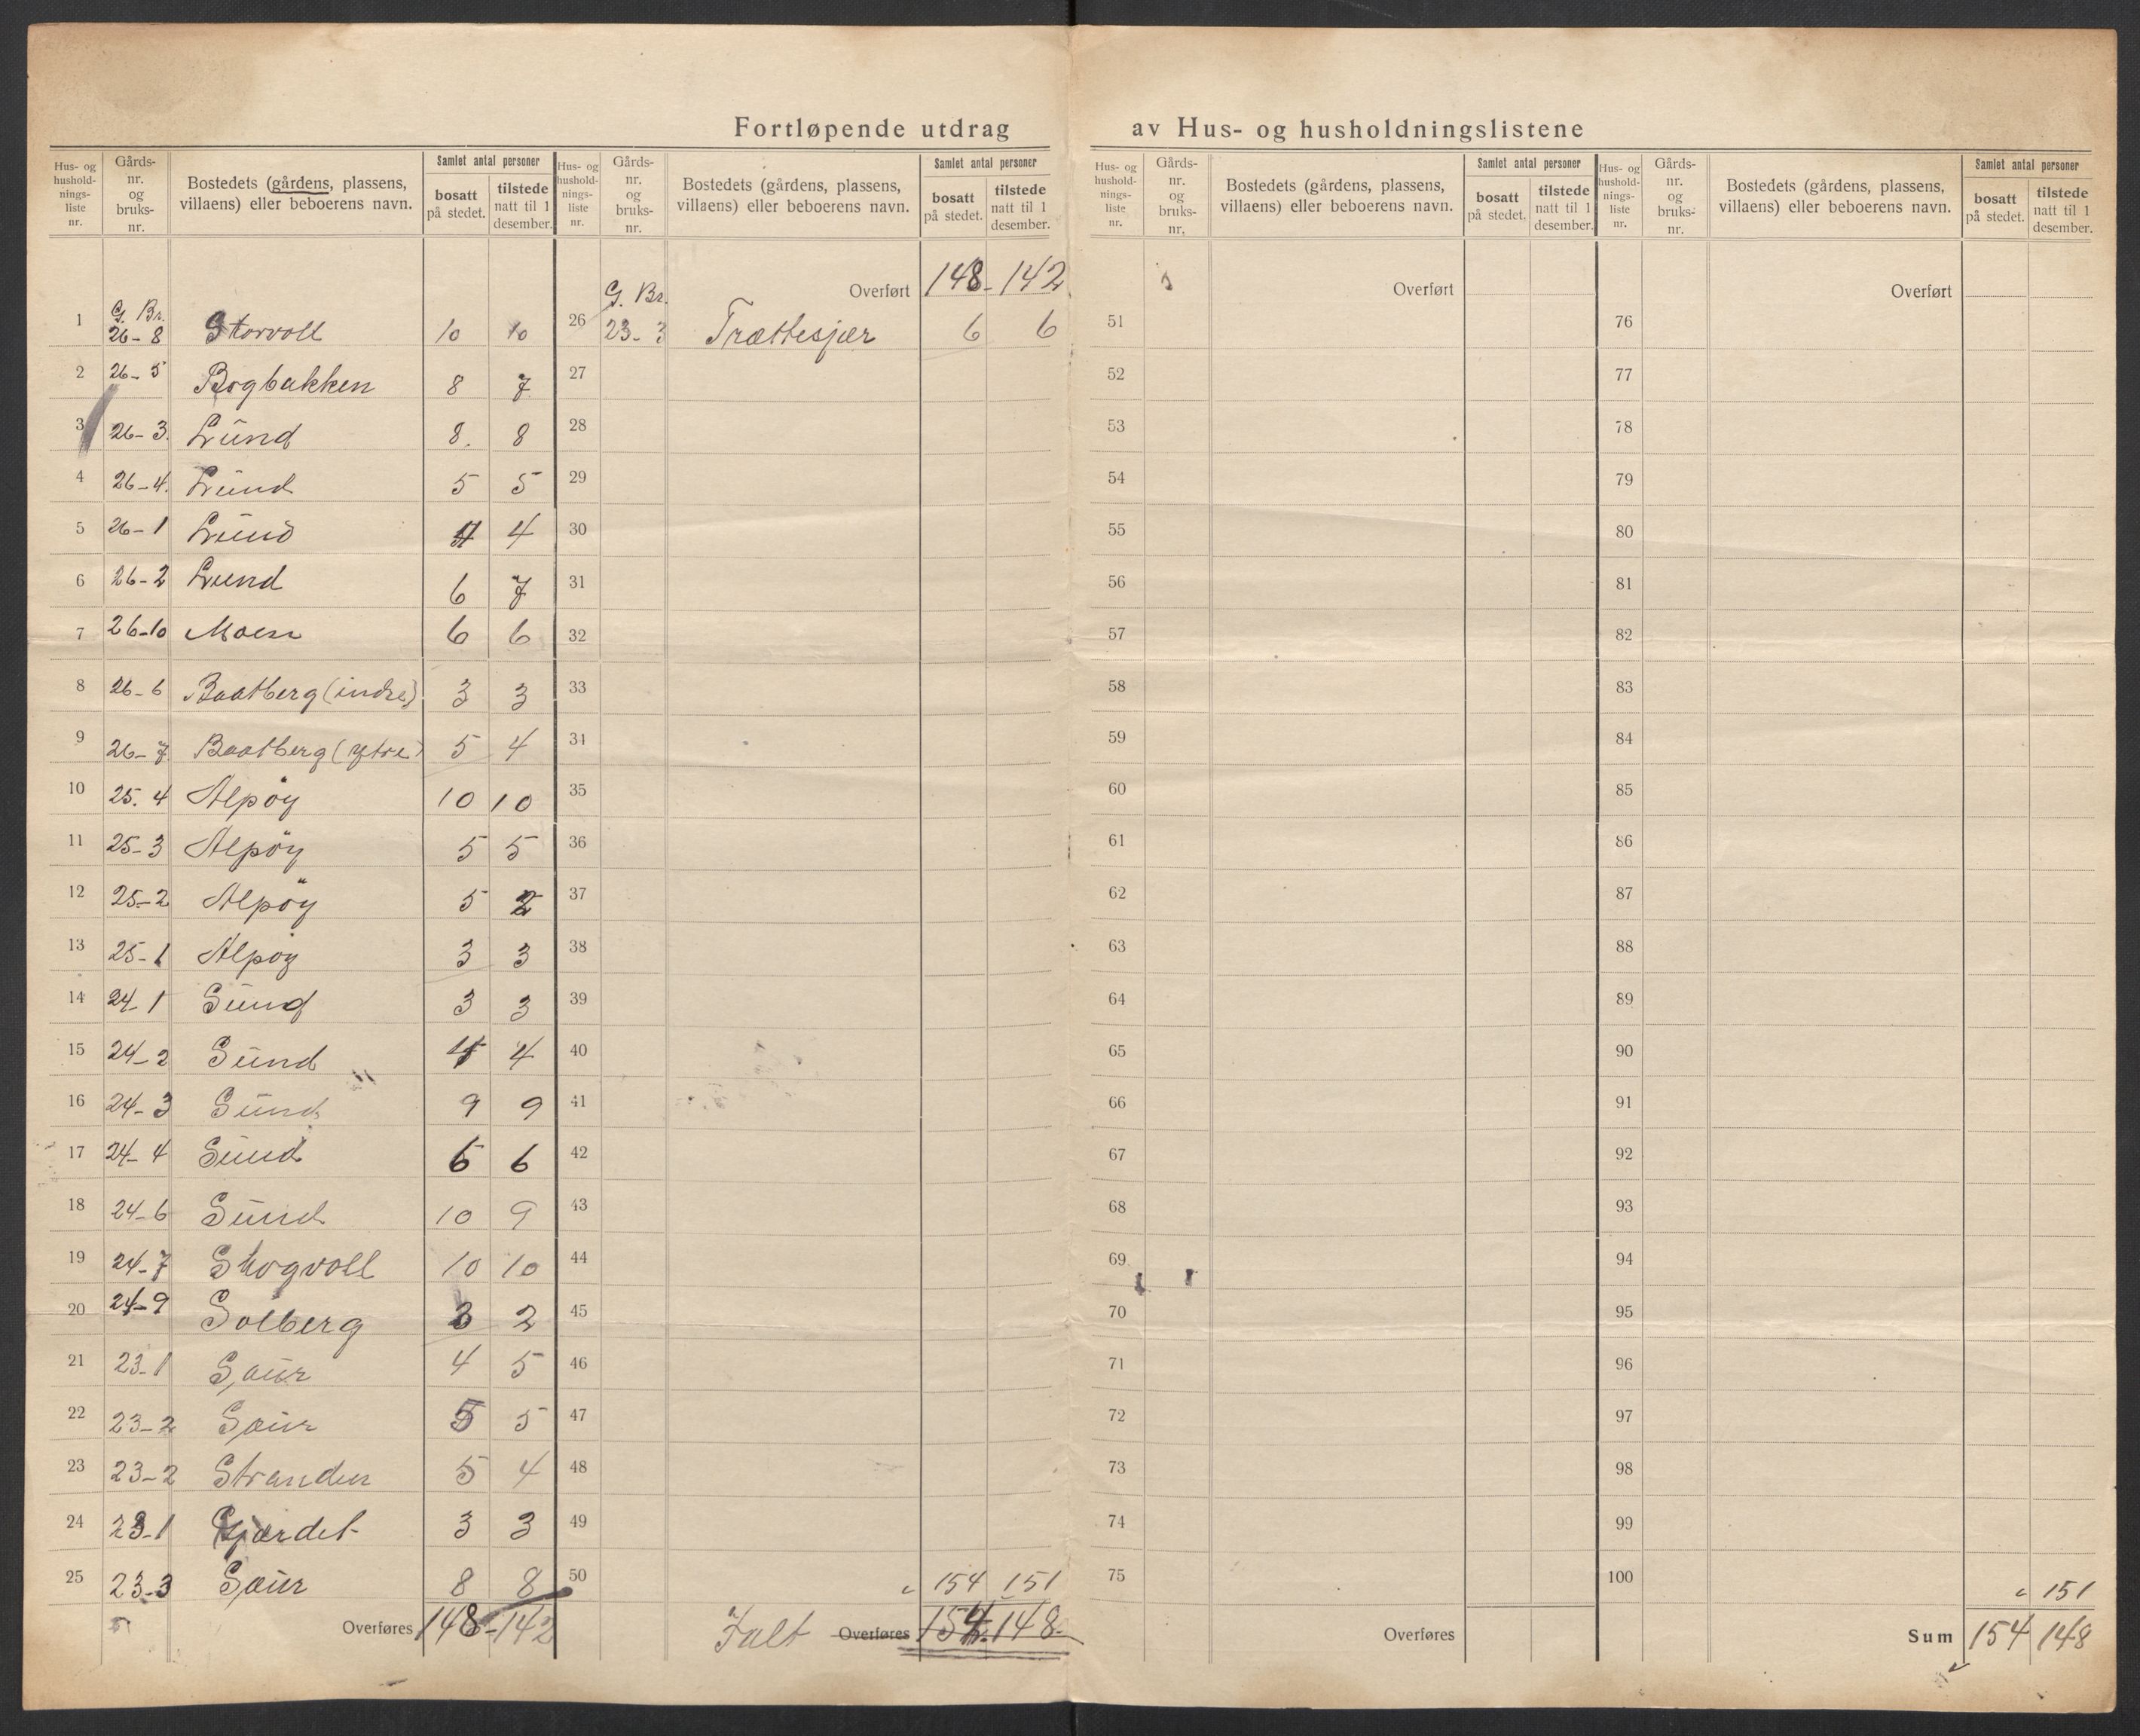 Fortløpende utdrag av Hus- og husholdningslistene
Hus- og husholdnings-liste nr. Gårds-nr. og bruks-nr. Bostedets (gårdens, plassens, villaens) eller beboerens navn. Samlet antal personer bosatt på stedet. tilstede natt til 1 desember.
Hus- og husholdnings-liste nr. Gårds-nr. og bruks-nr. Bostedets (gårdens, plassens, villaens) eller beboerens navn. Samlet antal personer bosatt på stedet. tilstede natt til 1 desember.
Hus- og husholdnings-liste nr. Gårds-nr. og bruks-nr. Bostedets (gårdens, plassens, villaens) eller beboerens navn. Samlet antal personer bosatt på stedet. tilstede natt til 1 desember.
Hus- og husholdnings-liste nr. Gårds-nr. og bruks-nr. Bostedets (gårdens, plassens, villaens) eller beboerens navn. Samlet antal personer bosatt på stedet. tilstede natt til 1 desember.
G. Br.
1 26-8 Storvoll 10 10
2 26-5 Bogbakken 8 7
3 26-3. Lund 8. 8
4 26-4. Lund 5 5
5 26-1 Lund 4 4
6 26-2 Lund 6 7
7 26-10 Moen 6 6
8 26-6 Baatberg (indre) 3 3
9 26-7. Baatberg (ytre) 5 4
10 25.4 Alpøy 10 10
11 25-3 Alpöy 5 5
12 25-2 Alpöy 5 2
13 25-1 Alpöy 3 3
14 24-1 Sund 3 3
15 24-2 Sund 4 4
16 24-3 Sund 9 9
17 24-4 Sund 6 6
18 24-6 Sund 10 9
19 24-7 Skogvoll 10 10
20 24-9 Solberg 3 2
21 23-1 Saur 4 5
22 23-2 Saur 5 5
23 23-2 Stranden 5 4
24 23-1 Gjærdet 3 3
25 23-3 Saur 8 8
Overføres 148-142
Overført 148-142
G. Br.
26 23-3 Trættesjær 6 6
27
28
29
30
31
32
33
34
35
36
37
38
39
40
41
42
43
44
45
46
47
48
49
50 154 151
Ialt Overføres 154.148.
Overført
51
52
53
54
55
56
57
58
59
60
61
62
63
64
65
66
67
68
69
70
71
72
73
74
75
Overføres
Overført
76
77
78
79
80
81
82
83
84
85
86
87
88
89
90
91
92
93
94
95
96
97
98
99
100 151
Sum 154 148